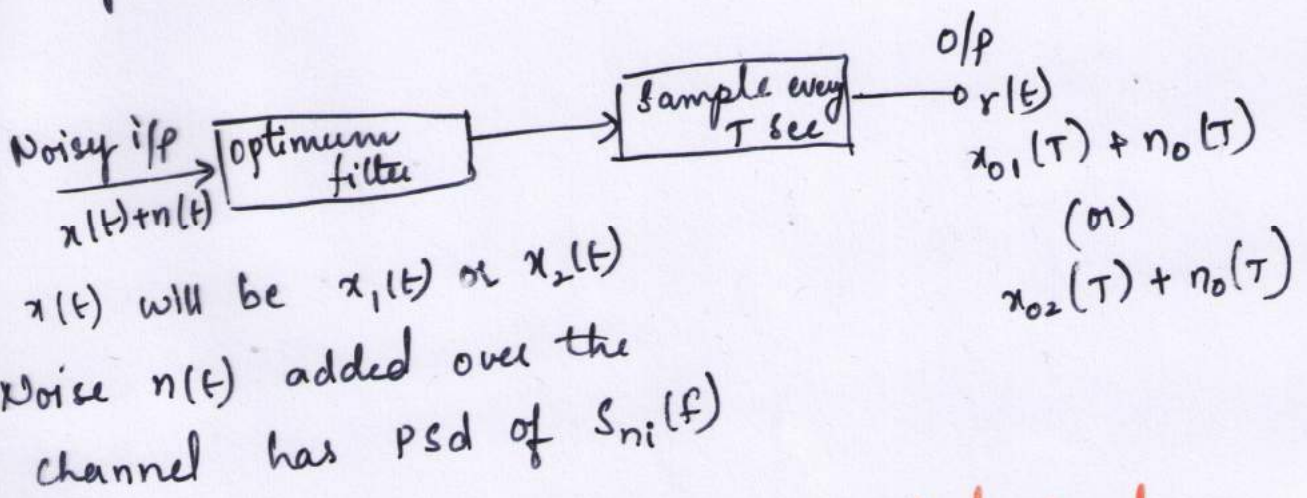 Noisy i/p
x(t)+n(t)
optimum
filter
Sample every
T sec
o/p
r(t)
x₀₁(T) + n₀(T)
(or)
x₀₂(T) + n₀(T)
x(t) will be x₁(t) or x₂(t)
Noise n(t) added over the
channel has psd of Sni(f)